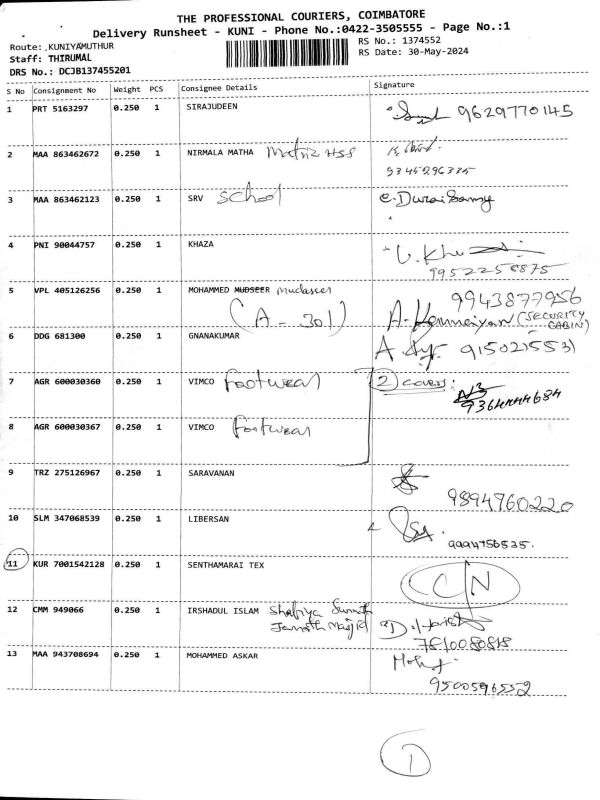 THE PROFESSIONAL COURIERS, COIMBATORE
Delivery Runsheet - KUNI - Phone No.:0422-3505555 - Page No.:1
Route: .KUNIYAMUTHUR RS No.: 1374552
Staff: THIRUMAL RS Date: 30-May-2024
DRS No.: DCJB137455201
S No Consignment No Weight PCS Consignee Details Signature
1 PRT 5163297 0.250 1 SIRAJUDEEN 9629770145
2 MAA 863462672 0.250 1 NIRMALA MATHA Matric HSS
9345296335
3 MAA 863462123 0.250 1 SRV School C. Durai Samy
4 PNI 90044757 0.250 1 KHAZA
9952258875
5 VPL 405126256 0.250 1 MOHAMMED MUDSEER mudaseer 9943877956
(A - 301) (SECURITY CABIN)
6 DDG 681300 0.250 1 GNANAKUMAR 9150215531
7 AGR 600030360 0.250 1 VIMCO footwear 2 covers:
9364444684
8 AGR 600030367 0.250 1 VIMCO footwear
9 TRZ 275126967 0.250 1 SARAVANAN
9894760220
10 SLM 347068539 0.250 1 LIBERSAN
9994756535.
11 KUR 7001542128 0.250 1 SENTHAMARAI TEX CN
12 CMM 949066 0.250 1 IRSHADUL ISLAM Shafiya Sunnath
Jamath Masjid
7810080818
13 MAA 943708694 0.250 1 MOHAMMED ASKAR
9500596552
1